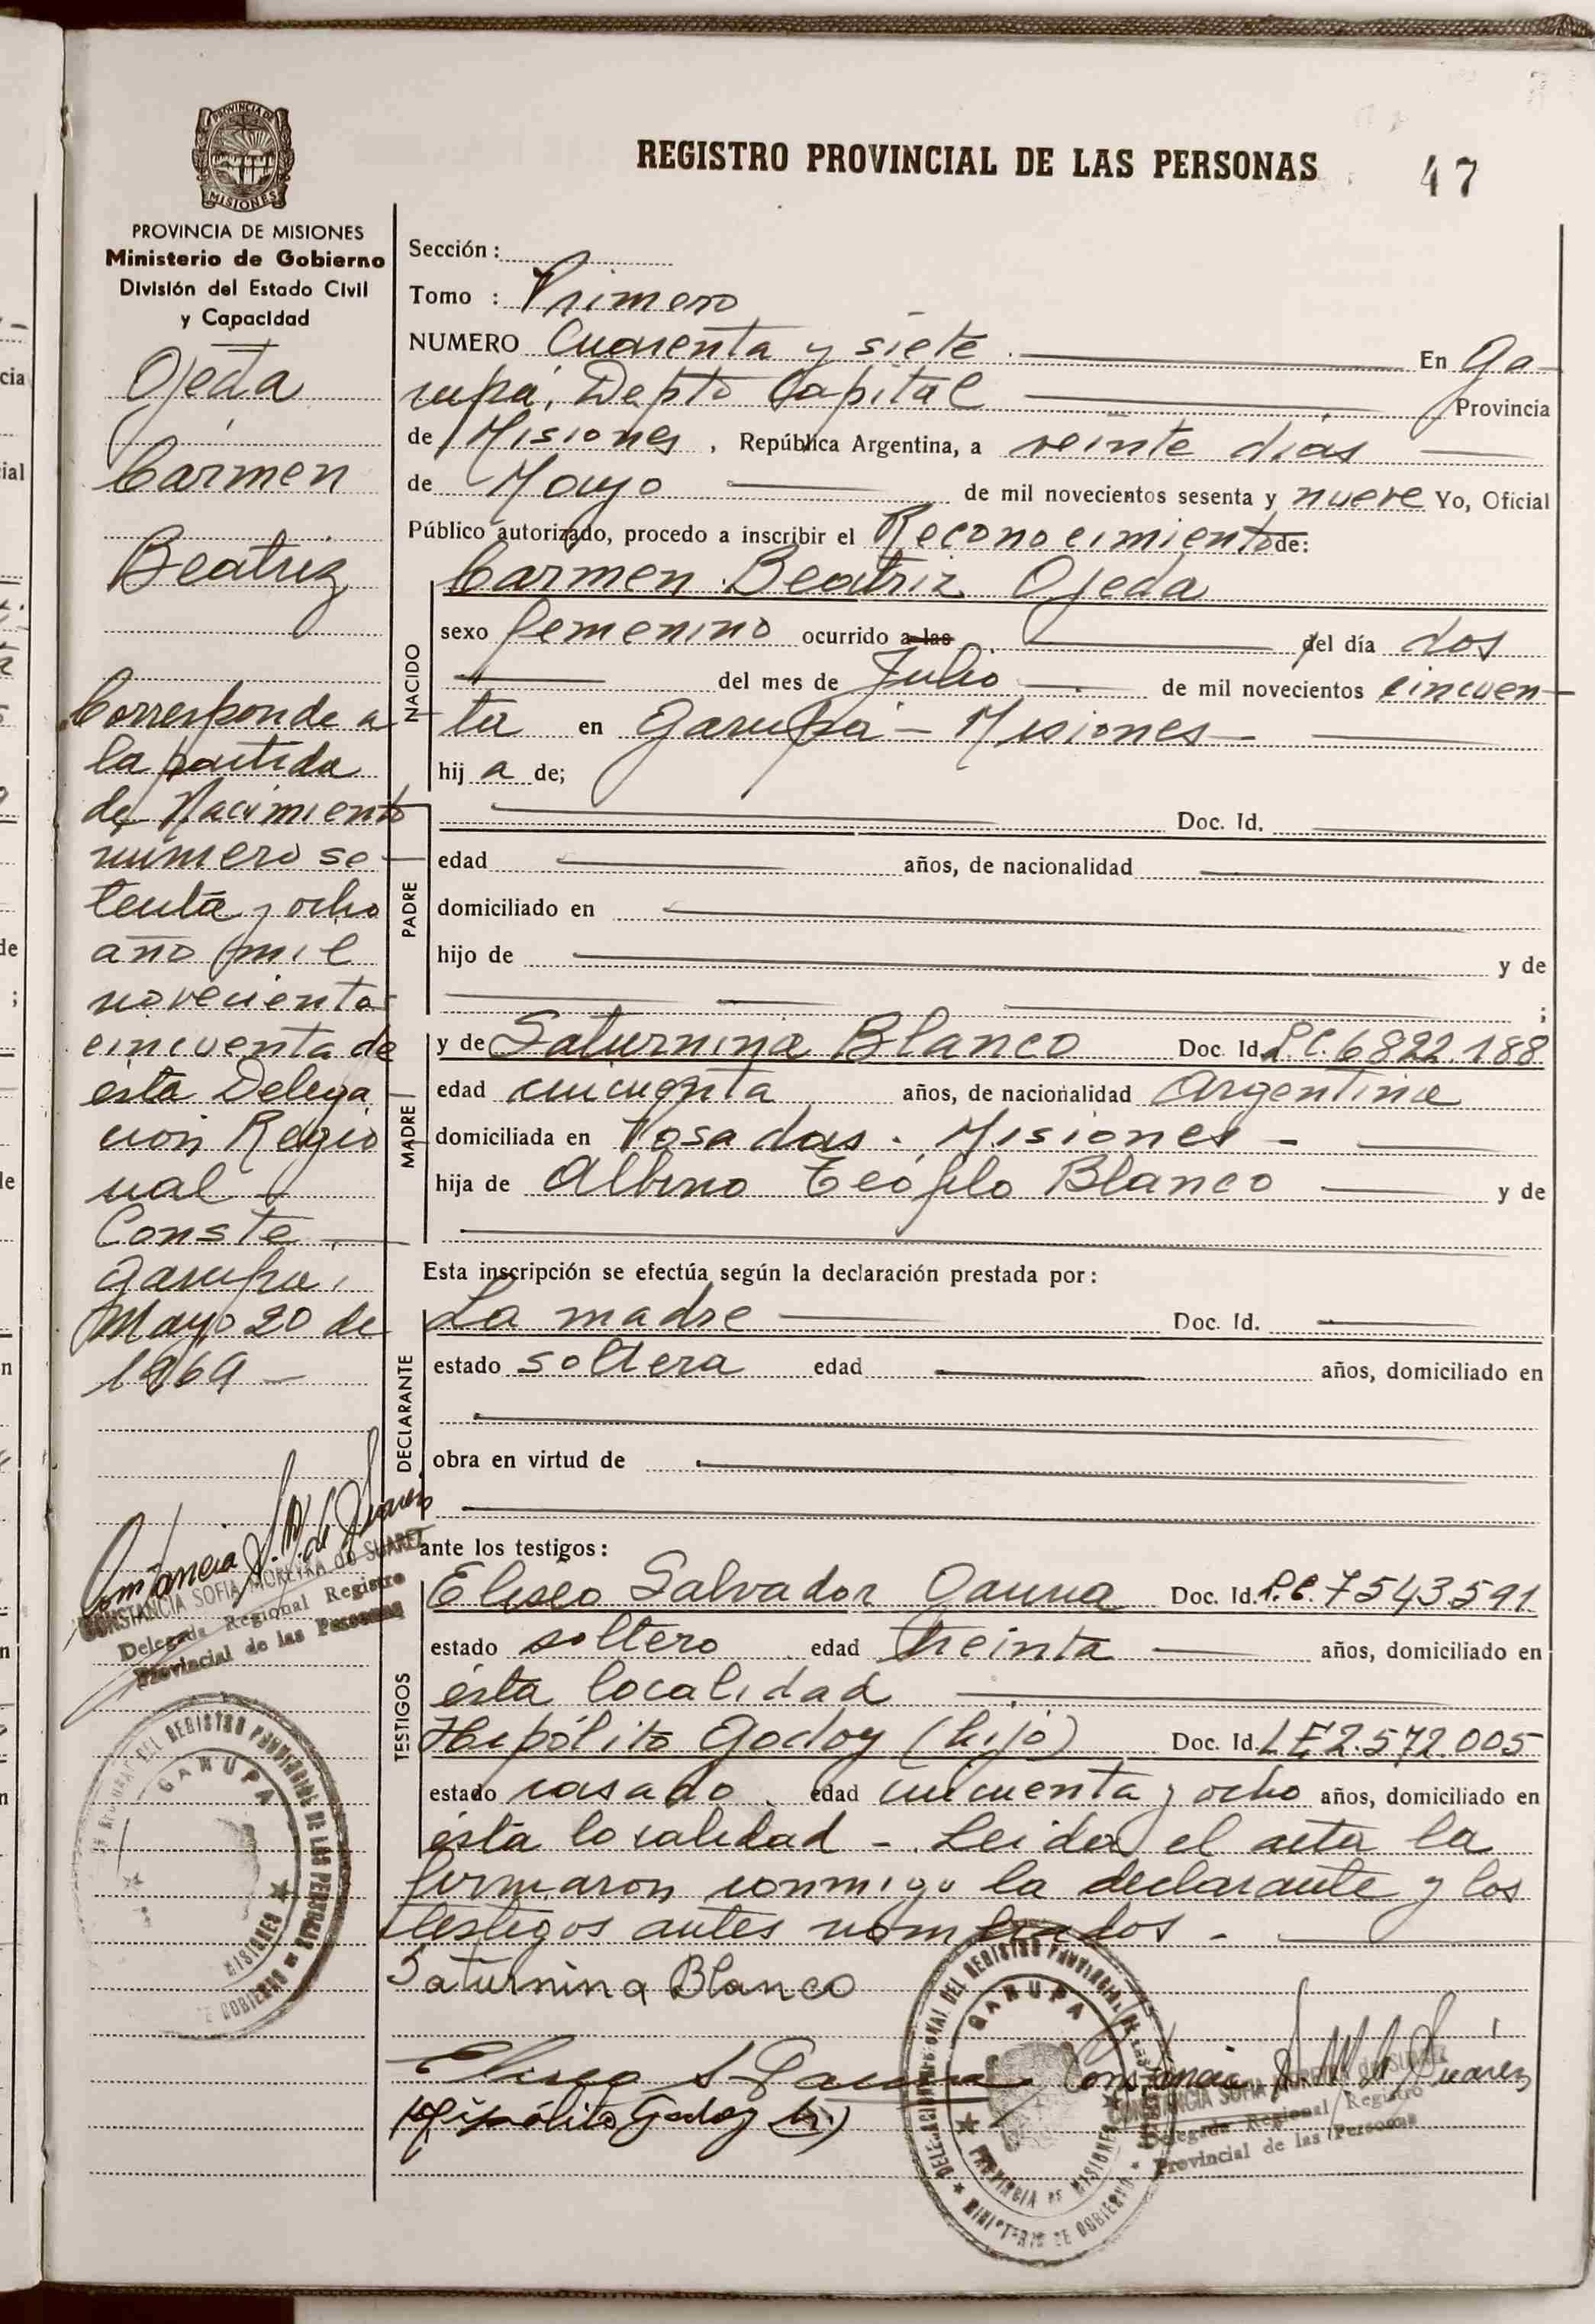 REGISTRO PROVINCIAL DE LAS PERSONAS 47
PROVINCIA DE MISIONES
Ministerio de Gobierno
División del Estado Civil
y Capacidad
Ojeda
Carmen
Beatriz
Corresponde a
la partida
de Nacimiento
número se-
tenta y ocho
año mil
novecientos
cincuenta de
ésta Delega
ción Regio
nal -
Conste -
Garupá,
Mayo 20 de
1969 -
CONSTANCIA SOFIA MOREYRA do SUAREZ
Delegada Regional Registro
Provincial de las Personas
Sección :
Tomo : Primero
NUMERO Cuarenta y siete . En Ga-
rupá, Depto Capital Provincia
de Misiones , República Argentina, a veinte días
de Mayo de mil novecientos sesenta y nueve Yo, Oficial
Público autorizado, procedo a inscribir el Reconocimiento de:
NACIDO
Carmen Beatriz Ojeda
sexo femenino ocurrido a las del día dos
del mes de Julio de mil novecientos cincuen-
ta en Garupá - Misiones -
hij a de;
PADRE
Doc. Id.
edad años, de nacionalidad
domiciliado en
hijo de y de
;
MADRE
y de Saturnina Blanco Doc. Id. L.C. 6822.188
edad cincuenta años, de nacionalidad Argentina
domiciliada en Posadas . Misiones -
hija de Albino Teófilo Blanco y de
Esta inscripción se efectúa según la declaración prestada por :
DECLARANTE
La madre Doc. Id.
estado soltera edad años, domiciliado en
obra en virtud de
ante los testigos :
TESTIGOS
Eliseo Salvador Gauna Doc. Id. 7543.591
estado soltero edad treinta años, domiciliado en
ésta localidad
Hipólito Godoy (hijo) Doc. Id. LE 2.572.005
estado casado . edad cincuenta y ocho años, domiciliado en
ésta localidad - Leida el acta la
firmaron conmigo la declarante y los
testigos antes nombrados -
Saturnina Blanco
Eliseo S Gauna
Hipólito Godoy (h.)
DELEGACION REGIONAL DEL REGISTRO PROVINCIAL DE LAS PERSONAS
GARUPA
PROVINCIA DE MISIONES
MINISTERIO DE GOBIERNO
CONSTANCIA SOFIA MOREYRA do SUAREZ
Delegada Regional Registro
Provincial de las Personas